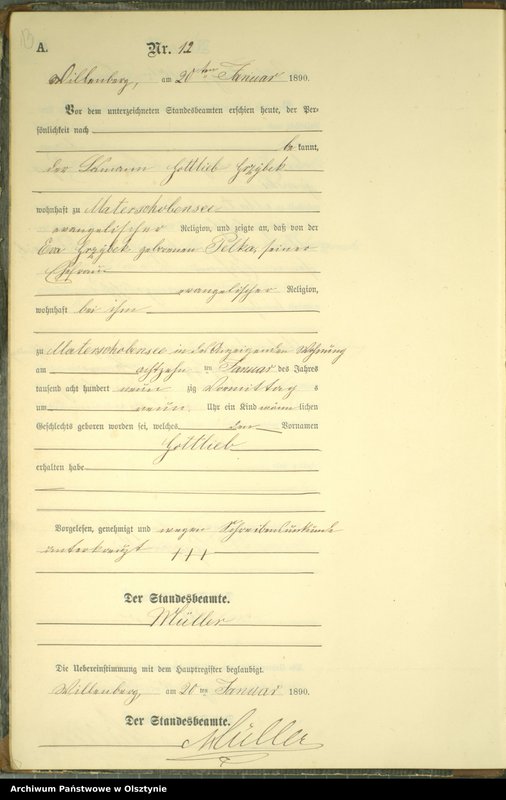 A.
Nr. 12
Willenberg, am 20ten Januar 1890.
Vor dem unterzeichneten Standesbeamten erschien heute, der Per-
sönlichkeit nach
be kannt,
der Gottlieb Grzybek
wohnhaft zu Materschobensee
evangelischer Religion, und zeigte an, daß von der
Eva Grzybek geborenen Pelka, seiner
Ehefrau
evangelischer Religion,
wohnhaft bei ihm
zu Materschobensee in des Anzeigenden Wohnung
am achtzehn ten Januar des Jahres
tausend acht hundert neun zig Vormittag s
um neun Uhr ein Kind männ lichen
Geschlechts geboren worden sei, welches den Vornamen
Gottlieb
erhalten habe
Vorgelesen, genehmigt und wegen Schreibensunkunde
unterkreuzt +++
Der Standesbeamte.
Müller
Die Uebereinstimmung mit dem Hauptregister beglaubigt.
Willenberg, am 20 ten Januar 1890.
Der Standesbeamte.
Müller
Archiwum Państwowe w Olsztynie